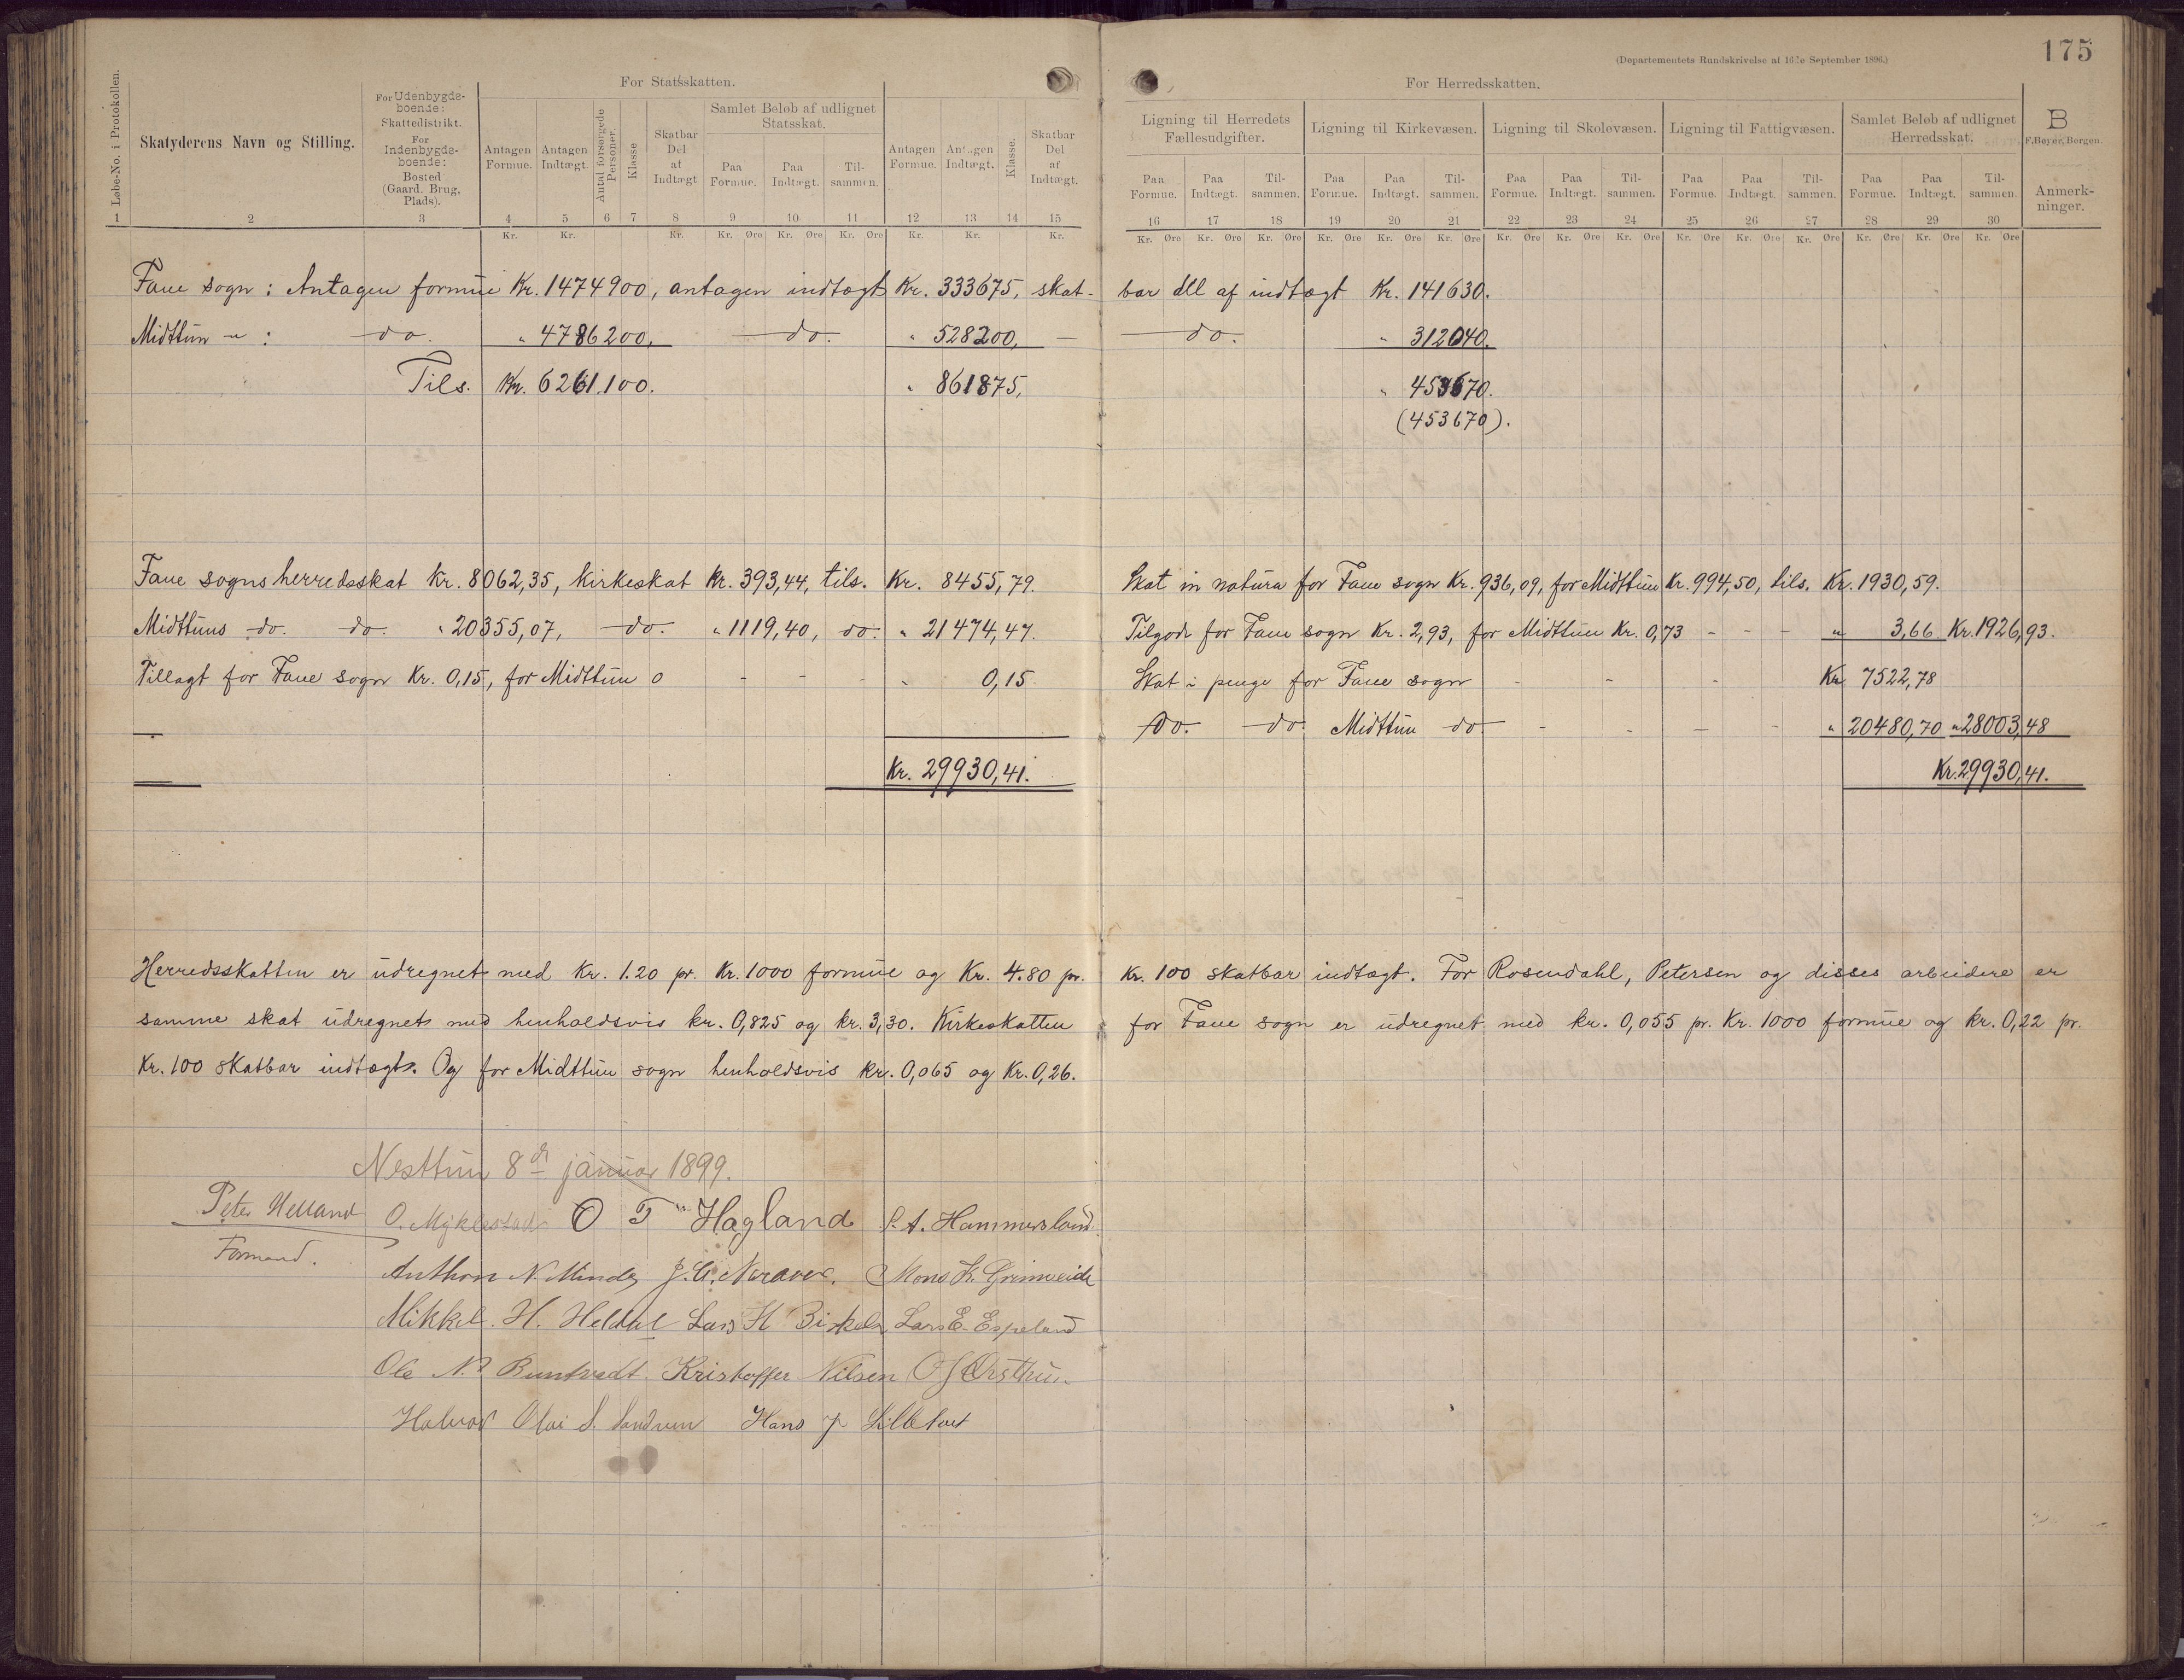 175
(Departementets Rundskrivelse af 16de September 1896.)
For Statsskatten.
For Herredsskatten.
Løbe-No. i Protokollen.
Skatyderens Navn og Stilling.
For Udenbygds-
boende:
Skattedistrikt.
For
Indenbygds-
boende:
Bosted
(Gaard. Brug,
Plads).
Antagen Formue.
Antagen Indtægt.
Antal forsørgede Personer.
Klasse
Skatbar Del af Indtægt
Samlet Beløb af udlignet Statsskat.
Paa Formue. Paa Indtægt. Til-sammen.
Antagen Formue.
Antagen Indtægt.
Klasse.
Skatbar Del af Indtægt.
Ligning til Herredets Fællesudgifter.
Paa Formue. Paa Indtægt. Til-sammen.
Ligning til Kirkevæsen.
Paa Formue. Paa Indtægt. Til-sammen.
Ligning til Skolevæsen.
Paa Formue. Paa Indtægt. Til-sammen.
Ligning til Fattigvæsen.
Paa Formue. Paa Indtægt. Til-sammen.
Samlet Beløb af udlignet Herredsskat.
Paa Formue. Paa Indtægt. Til-sammen.
B
F. Beyer, Bergen.
Anmerk-
ninger.
1 2 3 4 5 6 7 8 9 10 11 12 13 14 15 16 17 18 19 20 21 22 23 24 25 26 27 28 29 30
Kr. Kr. Kr. Kr. Øre Kr. Øre Kr. Øre Kr. Kr. Kr. Kr. Øre Kr. Øre Kr. Øre Kr. Øre Kr. Øre Kr. Øre Kr. Øre Kr. Øre Kr. Øre Kr. Øre Kr. Øre Kr. Øre Kr. Øre Kr. Øre Kr. Øre
Fane sogn: Antagen formue Kr. 1474900, antagen indtægt Kr. 333675, skat- bar del af indtægt Kr. 141630.
Midttun - " : do. " 4786200. do. " 528200, - do. " 312040.
Tils. Kr. 6261.100. " 861875, " 453670.
(453670).
Fane sogns herredsskat Kr. 8062,35, kirkeskat Kr. 393,44, tils. Kr. 8455,79. Skat in natura for Fane sogn Kr. 936,09, for Midttun Kr. 994,50, tils. Kr. 1930,59.
Midttuns do. do. " 20355,07, do. " 1119,40, do. " 21474,47. Tilgode for Fane sogn Kr. 2,93, for Midttun Kr. 0,73 - - - " 3,66 Kr. 1926,93.
Tillagt for Fane sogn Kr. 0,15, for Midttun 0 - - - " 0,15 Skat i penge for Fane sogn - - - Kr. 7522,78
Do. do. Midttun do. - - - - " 20480,70 " 28003,48
Kr. 29930,41. Kr. 29930,41.
Herredsskatten er udregnet med Kr. 1.20 pr. Kr. 1000 formue og Kr. 4.80 pr. Kr. 100 skatbar indtægt. For Rosendahl, Petersen og disses arbeidere er
samme skat udregnet med henholdsvis kr. 0,825 og kr. 3,30. Kirkeskatten for Fane sogn er udregnet med kr. 0,055 pr. Kr. 1000 formue og kr. 0,22 pr.
Kr. 100 skatbar indtægt. Og for Midttun sogn henholdsvis Kr. 0,065 og Kr. 0,26.
Nesttun 8de januar 1899.
Peter Helland O. Myklestad O T Hagland A. Hammersland
Formand.
Anthon N. Minde Mons
Mikkel H. Heldal Lars H Birkeland Lars E. Espeland
Ole Kristoffer Nilsen
Halvor Hans